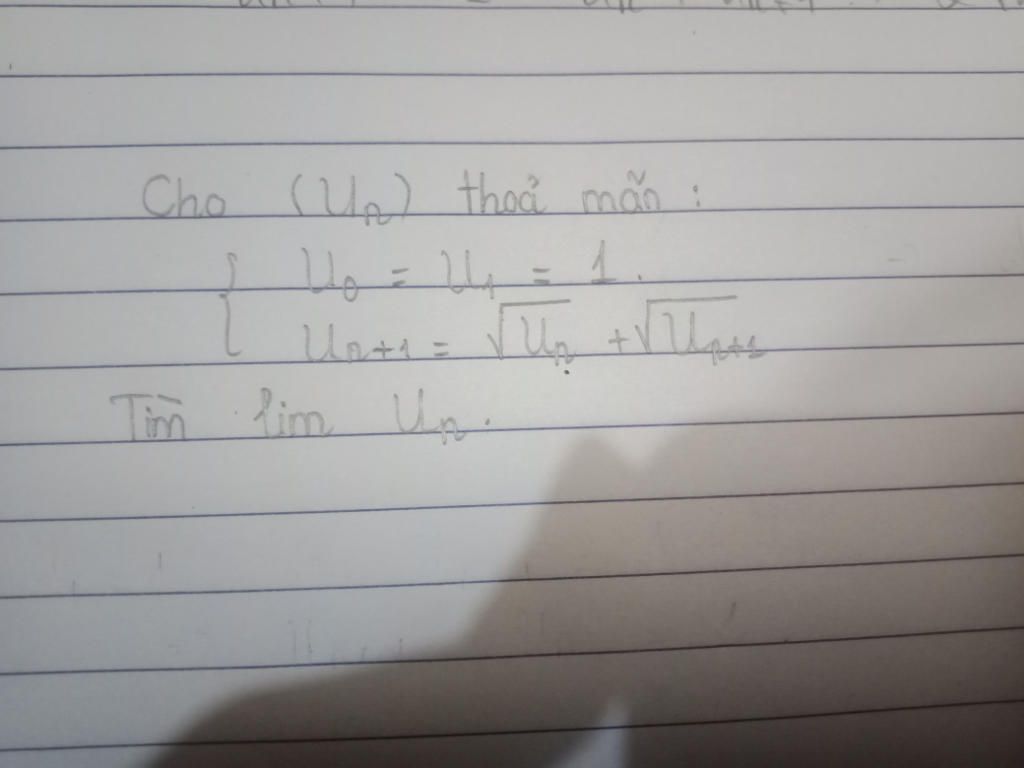 Cho (Un) thoả mãn :
U0 = U1 = 1.
Un+1 = √Un + √Un+1
Tìm lim Un.